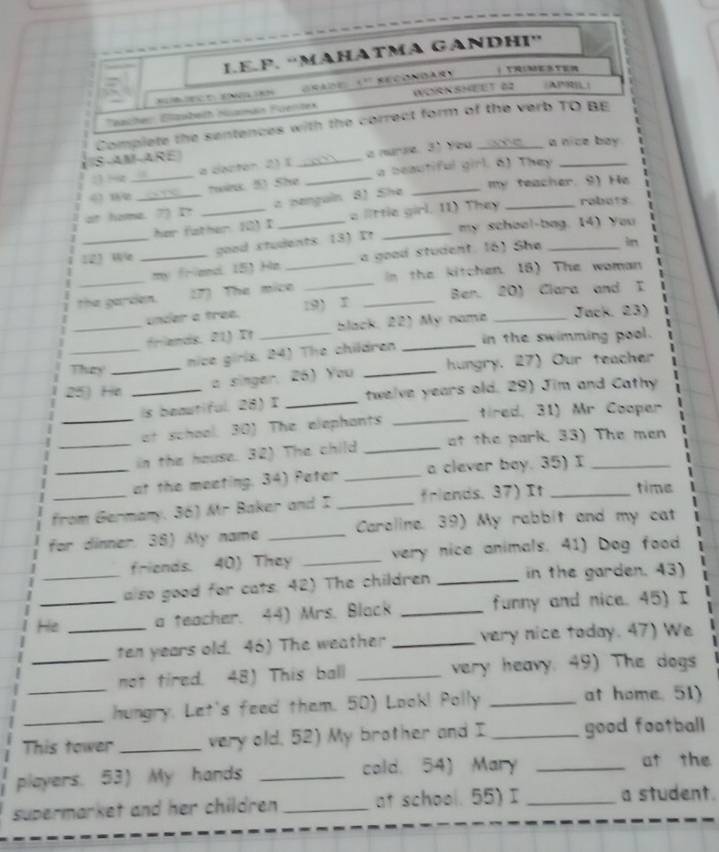 I.E.P. "MAHATMA GANDHI"
SUBJECT: ENGLISH GRADE: 1° SECONDARY I TRIMESTER
Teacher: Elizabeth Huamán Fuentes WORKSHEET 02 (APRIL)
Complete the sentences with the correct form of the verb TO BE
(IS-AM-ARE)
1) He is a doctor. 2) I ______ a nurse. 3) You ______ a nice boy.
4) We ______ twins. 5) She ______ a beautiful girl. 6) They ______
at home. 7) It ______ a penguin. 8) She ______ my teacher. 9) He
______ her father. 10) I ______ a little girl. 11) They ______ robots.
12) We ______ good students. 13) It ______ my school-bag. 14) You
______ my friend. 15) He ______ a good student. 16) She ______ in
the garden. 17) The mice ______ in the kitchen. 18) The woman
______ under a tree. 19) I ______ Ben. 20) Clara and I
______ friends. 21) It ______ black. 22) My name ______ Jack. 23)
They ______ nice girls. 24) The children ______ in the swimming pool.
25) He ______ a singer. 26) You ______ hungry. 27) Our teacher
______ is beautiful. 28) I ______ twelve years old. 29) Jim and Cathy
______ at school. 30) The elephants ______ tired. 31) Mr Cooper
______ in the house. 32) The child ______ at the park. 33) The men
______ at the meeting. 34) Peter ______ a clever boy. 35) I ______
from Germany. 36) Mr Baker and I ______ friends. 37) It ______ time
for dinner. 38) My name ______ Caroline. 39) My rabbit and my cat
______ friends. 40) They ______ very nice animals. 41) Dog food
______ also good for cats. 42) The children ______ in the garden. 43)
He ______ a teacher. 44) Mrs. Black ______ funny and nice. 45) I
______ ten years old. 46) The weather ______ very nice today. 47) We
______ not tired. 48) This ball ______ very heavy. 49) The dogs
______ hungry. Let's feed them. 50) Look! Polly ______ at home. 51)
This tower ______ very old. 52) My brother and I ______ good football
players. 53) My hands ______ cold. 54) Mary ______ at the
supermarket and her children ______ at school. 55) I ______ a student.